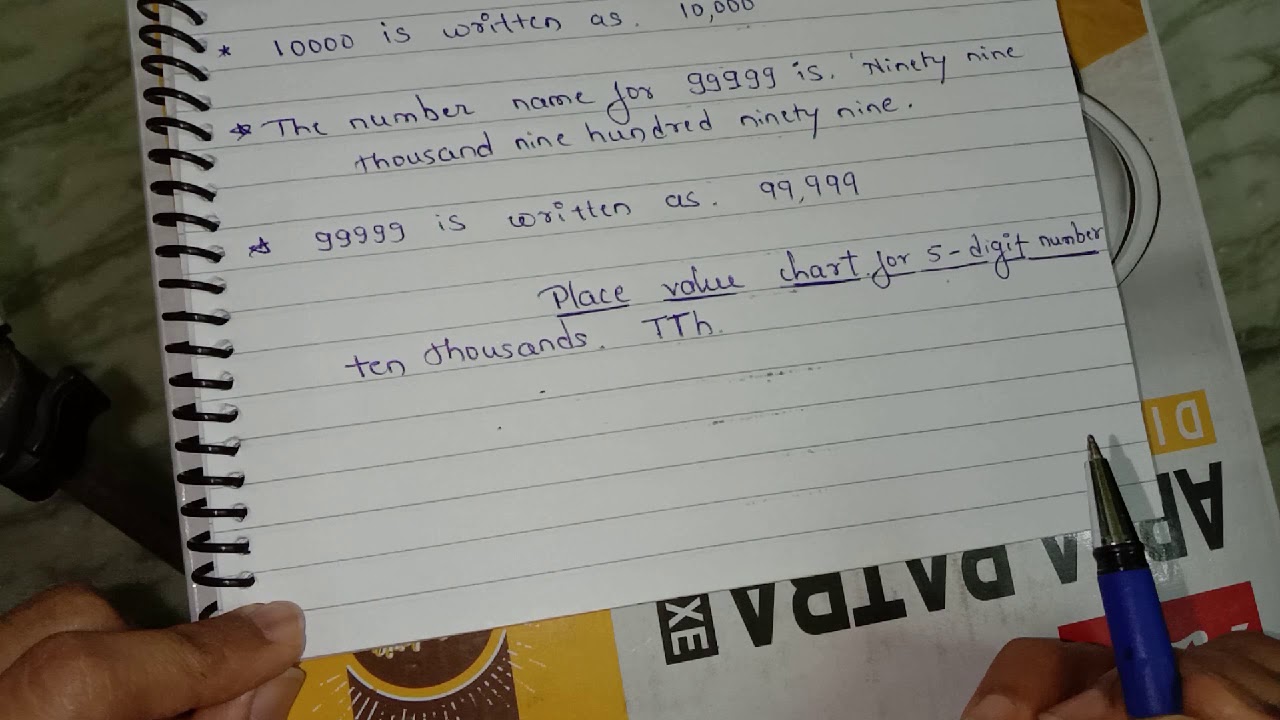 * 10000 is written as. 10,000
* The number name for 99999 is. Ninety nine
thousand nine hundred ninety nine.
* 99999 is written as. 99,999
Place value chart for 5-digit number
ten thousands. TTh.
DI
PATRA
XE